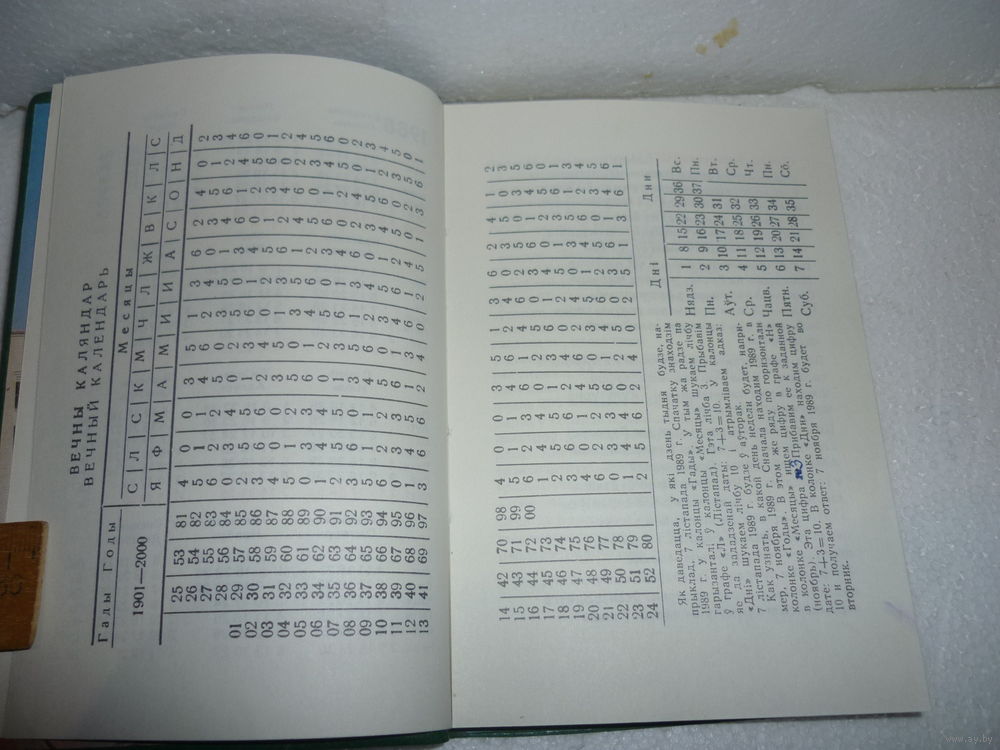 ВЕЧНЫ КАЛЯНДАР
ВЕЧНЫЙ КАЛЕНДАРЬ
Гады Годы Месяцы
1901—2000 С Л С К М Ч Л Ж В К Л С
Я Ф М А М И И А С О Н Д
25 53 81 4 0 0 3 5 1 3 6 2 4 0 2
26 54 82 5 1 1 4 6 2 4 0 3 5 1 3
27 55 83 6 2 2 5 0 3 5 1 4 6 2 4
28 56 84 0 3 4 0 2 5 0 3 6 1 4 6
01 29 57 85 2 5 5 1 3 6 1 4 0 2 5 0
02 30 58 86 3 6 6 2 4 0 2 5 1 3 6 1
03 31 59 87 4 0 0 3 5 1 3 6 2 4 0 2
04 32 60 88 5 1 2 5 0 3 5 1 4 6 2 4
05 33 61 89 0 3 3 6 1 4 6 2 5 0 3 5
06 34 62 90 1 4 4 0 2 5 0 3 6 1 4 6
07 35 63 91 2 5 5 1 3 6 1 4 0 2 5 0
08 36 64 92 3 6 0 3 5 1 3 6 2 4 0 2
09 37 65 93 5 1 1 4 6 2 4 0 3 5 1 3
10 38 66 94 6 2 2 5 0 3 5 1 4 6 2 4
11 39 67 95 0 3 3 6 1 4 6 2 5 0 3 5
12 40 68 96 1 4 5 1 3 6 1 4 0 2 5 0
13 41 69 97 3 6 6 2 4 0 2 5 1 3 6 1
14 42 70 98 4 0 0 3 5 1 3 6 2 4 0 2
15 43 71 99 5 1 1 4 6 2 4 0 3 5 1 3
16 44 72 00 6 2 3 6 1 4 6 2 5 0 3 5
17 45 73 1 4 4 0 2 5 0 3 6 1 4 6
18 46 74 2 5 5 1 3 6 1 4 0 2 5 0
19 47 75 3 6 6 2 4 0 2 5 1 3 6 1
20 48 76 4 0 1 4 6 2 4 0 3 5 1 3
21 49 77 6 2 2 5 0 3 5 1 4 6 2 4
22 50 78 0 3 3 6 1 4 6 2 5 0 3 5
23 51 79 1 4 4 0 2 5 0 3 6 1 4 6
24 52 80 2 5 6 2 4 0 2 5 1 3 6 1
Як даведацца, у які дзень тыдня будзе, на-
прыклад, 7 лістапада 1989 г. Спачатку знаходзім
1989 г. у калонцы «Гады», у тым жа радзе па
гарызанталі ў калонцы «Месяцы» шукаем лічбу
ў графе «Л» (Лістапад). Гэта лічба 3. Прыбавім
яе да зададзенай даты: 7+3=10. У калонцы
«Дні» шукаем лічбу 10 і атрымліваем адказ:
7 лістапада 1989 г. будзе ў аўторак.
Как узнать, в какой день недели будет, напри-
мер, 7 ноября 1989 г. Сначала находим 1989 г. в
колонке «Годы». В этом же ряду по горизонтали
в колонке «Месяцы» ищем цифру в графе «Н»
(ноябрь). Эта цифра 3. Прибавим ее к заданной
дате: 7+3=10. В колонке «Дни» находим цифру
10 и получаем ответ: 7 ноября 1989 г. будет во
вторник.
Дні Дни
Нядз. 1 8 15 22 29 36 Вс.
Пн. 2 9 16 23 30 37 Пн.
Аўт. 3 10 17 24 31 Вт.
Ср. 4 11 18 25 32 Ср.
Чацв. 5 12 19 26 33 Чт.
Пятн. 6 13 20 27 34 Пн.
Суб. 7 14 21 28 35 Сб.
www.ay.by